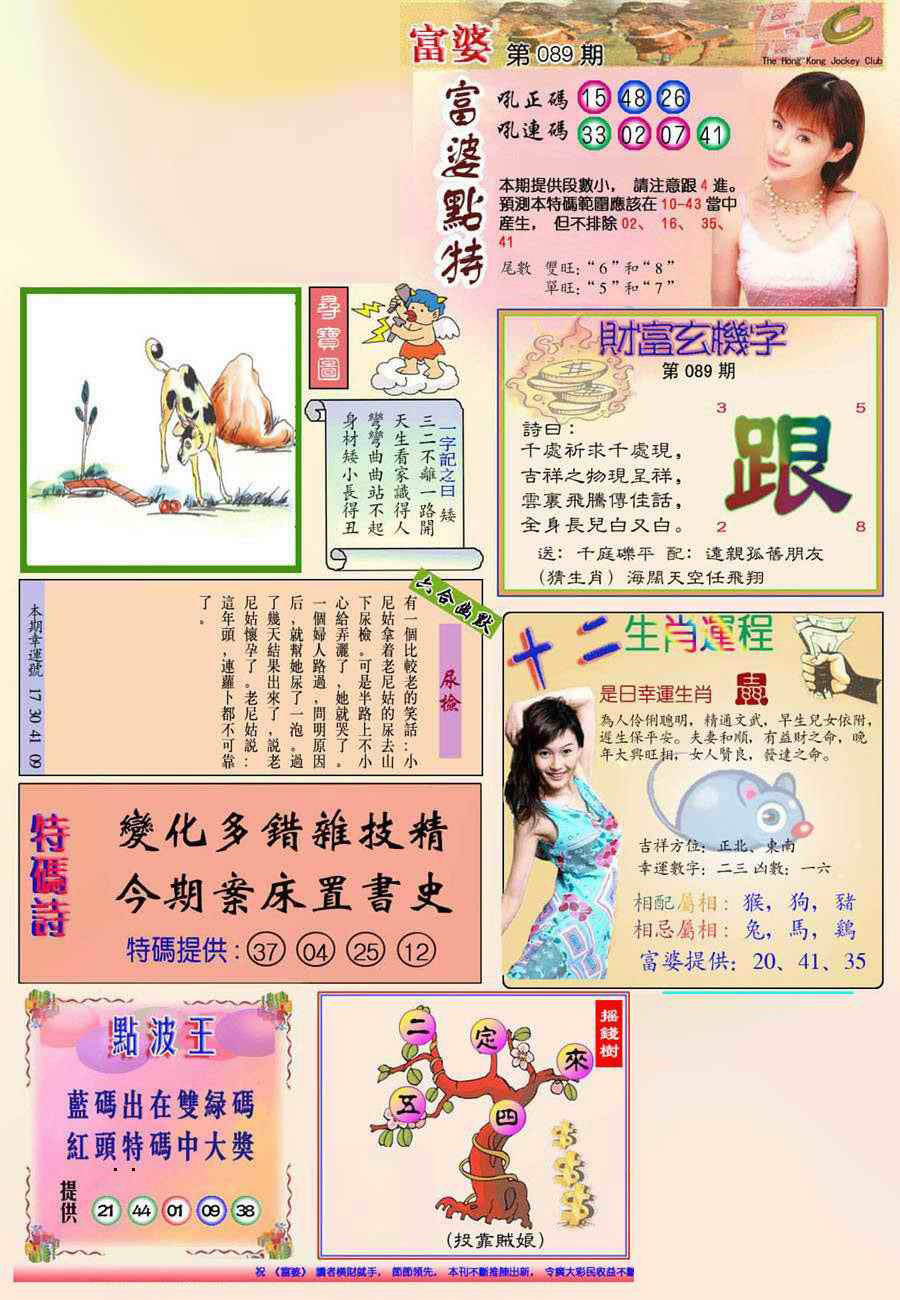 富婆 第089期
The Hong Kong Jockey Club
富婆點特
吼正碼 15 48 26
吼連碼 33 02 07 41
本期提供段數小， 請注意跟4進。
預測本特碼範圍應該在10-43當中
産生， 但不排除02、 16、 35、
41
尾數 雙旺：“6”和“8”
單旺：“5”和“7”
尋寶圖
一字記之曰 矮
三二不離一路開
天生看家識得人
彎彎曲曲站不起
身材矮小長得丑
財富玄機字
第089期
詩曰：
千處祈求千處現，
吉祥之物現呈祥，
雲裏飛騰傳佳話，
全身長兒白又白。
3 5
跟
2 8
送： 千庭礫平 配： 遠親孤舊朋友
（猜生肖）海闊天空任飛翔
六合幽默
尿檢
有一個比較老的笑話：小
尼姑拿着老尼姑的尿去山
下尿檢。可是半路上不小
心給弄灑了，她就哭了。
一個婦人路過，問明原因
后，就幫她尿了一泡。過
了幾天結果出來了，説老
尼姑懷孕了。老尼姑説：
這年頭，連蘿卜都不可靠
了。
本期幸運號 17 30 41 09
十二生肖運程
是日幸運生肖
為人伶俐聰明，精通文武，早生兒女依附，
遲生保平安。夫妻和順，有益財之命，晚
年大興旺相，女人賢良，發達之命。
吉祥方位：正北、東南
幸運數字：二三 凶數：一六
相配屬相：猴，狗，豬
相忌屬相：兔，馬，鷄
富婆提供：20、41、35
特碼詩
變化多錯雜技精
今期案床置書史
特碼提供：37 04 25 12
點波王
藍碼出在雙緑碼
紅頭特碼中大獎
提供 21 44 01 09 38
摇錢樹
二 定 來
五 四
（投靠賊娘）
祝 《富婆》 讀者橫財就手， 節節領先， 本刊不斷推陳出新， 令廣大彩民收益不斷